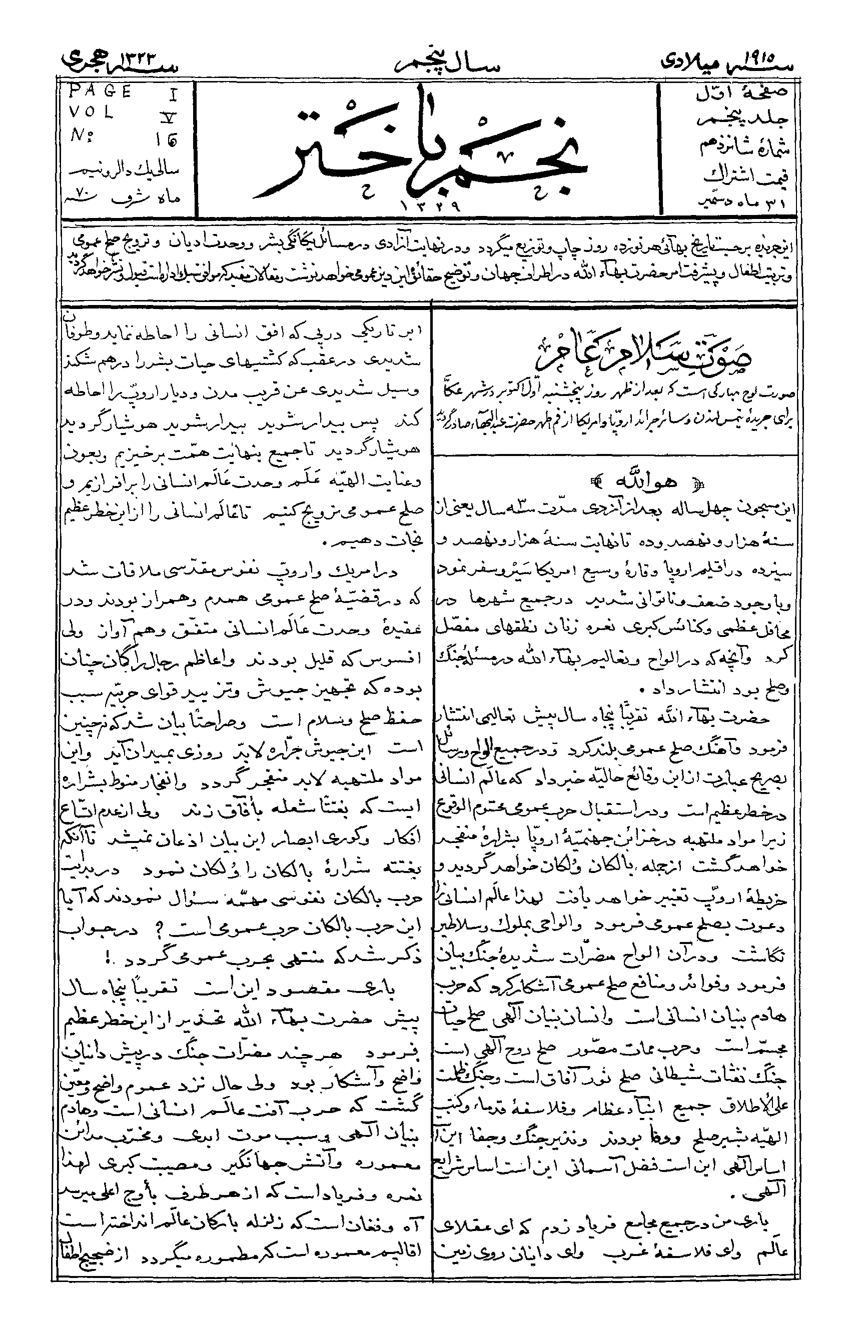 سنه ۱۹۱۵ میلادی
سال پنجم
سنه ۱۳۳۳ هجری
صفحهٔ اوّل
جلد پنجم
شمارهٔ شانزدهم
قیمت اشتراک
۳۱ ماه دسمبر
نجم باختر
۱۳۲۹
PAGE I
VOL V
No: 16
سالی یک دالر و نیم
ماه شرف سنه ۷۰
این جریده برحسب تاریخ بهائی هر نوزده روز چاپ و توزیع میگردد و در نهایت آزادی در مسائل یگانگی بشر و وحدت ادیان و ترویج صلح عمومی
و تربیت اطفال و پیشرفت امر حضرت بهآء الله در اطراف جهان و توضیح حقائق این دین عمومی خواهد نوشت و مقالات مفیده که موافق مسلک اداره است قبول و نشر خواهد گردید
صَوت سَلام عَام
صورت لوح مبارکی است که بعد از ظهر روز پنجشنبه اوّل اکتوبر در شهر عکّا
برای جریدهٔ تیمس لندن و سائر جرائد اروپا و امریکا از فم اطهر حضرت عبدالبهآء صادر گردید
هو الله
این مسجون چهل ساله بعد از آزادی مدّت سه سال یعنی از
سنهٔ هزار و نهصد و ده تا نهایت سنهٔ هزار و نهصد و
سیزده در اقلیم اروپا و قارهٔ وسیع امریکا سَیر و سفر نمود
و با وجود ضعف و ناتوانی شدید در جمیع شهرها در
محافل عظمی و کنائس کبری نعره زنان نطقهای مفصّل
کرد و آنچه که در الواح و تعالیم بهآء الله در مسئلهٔ جنگ
و صلح بود انتشار داد .
حضرت بهآء الله تقریبًا پنجاه سال پیش تعالیمی انتشار
فرمود و آهنگ صلح عمومی بلند کرد و در جمیع الواح و رسائل
بصریح عبارت از این وقائع حالیّه خبر داد که عالَم انسانی
در خطر عظیم است و در استقبال حرب عمومی محتوم الوقوع
زیرا مواد ملتهبه در خزائن جهنّمیّهٔ اروپا بشرارهٔ منفجر
خواهد گشت از جمله بالکان وُلکان خواهد گردید و
خریطهٔ اروپ تغییر خواهد یافت لهذا عالَم انسانی را
دعوت بصلح عمومی فرمود والواحی بملوک و سلاطین
نگاشت و در آن الواح مضرّات شدیدهٔ جنگ بیان
فرمود و فوائد و منافع صلح عمومی آشکار کرد که حرب
هادم بنیان انسانی است و انسان بنیان الهی صلح حیات
مجسّم است و حرب ممات مصوّر صلح روح الهی است
جنگ نفثات شیطانی صلح نور آفاق است و جنگ ظلمت
علی الاطلاق جمیع انبیآء عظام و فلاسفهٔ قدمآء و کتب
الهیّه بشیر صلح و وفا بودند و نذیر جنگ و جفا این است
اساس الهی این است فضل آسمانی این است اساس شرایع
الهی .
باری من در جمیع مجامع فریاد زدم که ای عقلای
عالَم و ای فلاسفهٔ غرب و ای دانایان روی زمین
ابر تاریکی در پی که افق انسانی را احاطه نماید و طوفان
شدیدی در عقب که کشتیهای حیات بشر را در هم شکند
و سیل شدیدی عن قریب مدن و دیار اروپ را احاطه
کند پس بیدار شوید بیدار شوید هوشیار گردید
هوشیار گردید تا جمیع بنهایت همّت برخیزیم و بعون
و عنایت الهیّه عَلَم وحدت عالَم انسانی را برافرازیم و
صلح عمومی ترویج کنیم تا عالَم انسانی را از این خطر عظیم
نجات دهیم .
در امریک و اروپ نفوس مقدّسی ملاقات شد
که در قضیّهٔ صلح عمومی همدم و همراز بودند و در
عقیدهٔ وحدت عالَم انسانی متّفق و هم آواز ولی
افسوس که قلیل بودند و اعاظم رجال را گمان چنان
بود که تجهیز جیوش و تزیید قوای حربیّه سبب
حفظ صلح و سلام است و صراحتًا بیان شد که نه چنین
است این جیوش جرّاره لابد روزی بمیدان آید و این
مواد ملتهبه لابد منفجر گردد و انفجار منوط بشراره
ایست که بغتتًا شعله بآفاق زند ولی از عدم اتّساع
افکار و کوری ابصار این بیان اذعان نمیشد تا آنکه
بغتته شرارهٔ بالکان را وُلکان نمود در بدایت
حرب بالکان نفوسی مهمّه سئوال نمودند که آیا
این حرب بالکان حرب عمومی است ؟ در جواب
ذکر شد که منتهی بحرب عمومی گردد !.
باری مقصود این است تقریبًا پنجاه سال
پیش حضرت بهآء الله تحذیر از این خطر عظیم
فرمود هر چند مضرّات جنگ در پیش دانایان
واضح و آشکار بود ولی حال نزد عموم واضح و معیّن
گشت که حرب آفت عالَم انسانی است و هادم
بنیان الهی و سبب موت ابدی و مخرّب مدائن
معموره و آتش جهانگیر و مصیبت کبری لهذا
نعره و فریاد است که از هر طرف بأوج اعلی میرسد
آه و فغان است که زلزله بارکان عالَم انداخته است
اقالیم معموره است که مطموره میگردد از ضجیج اطفال